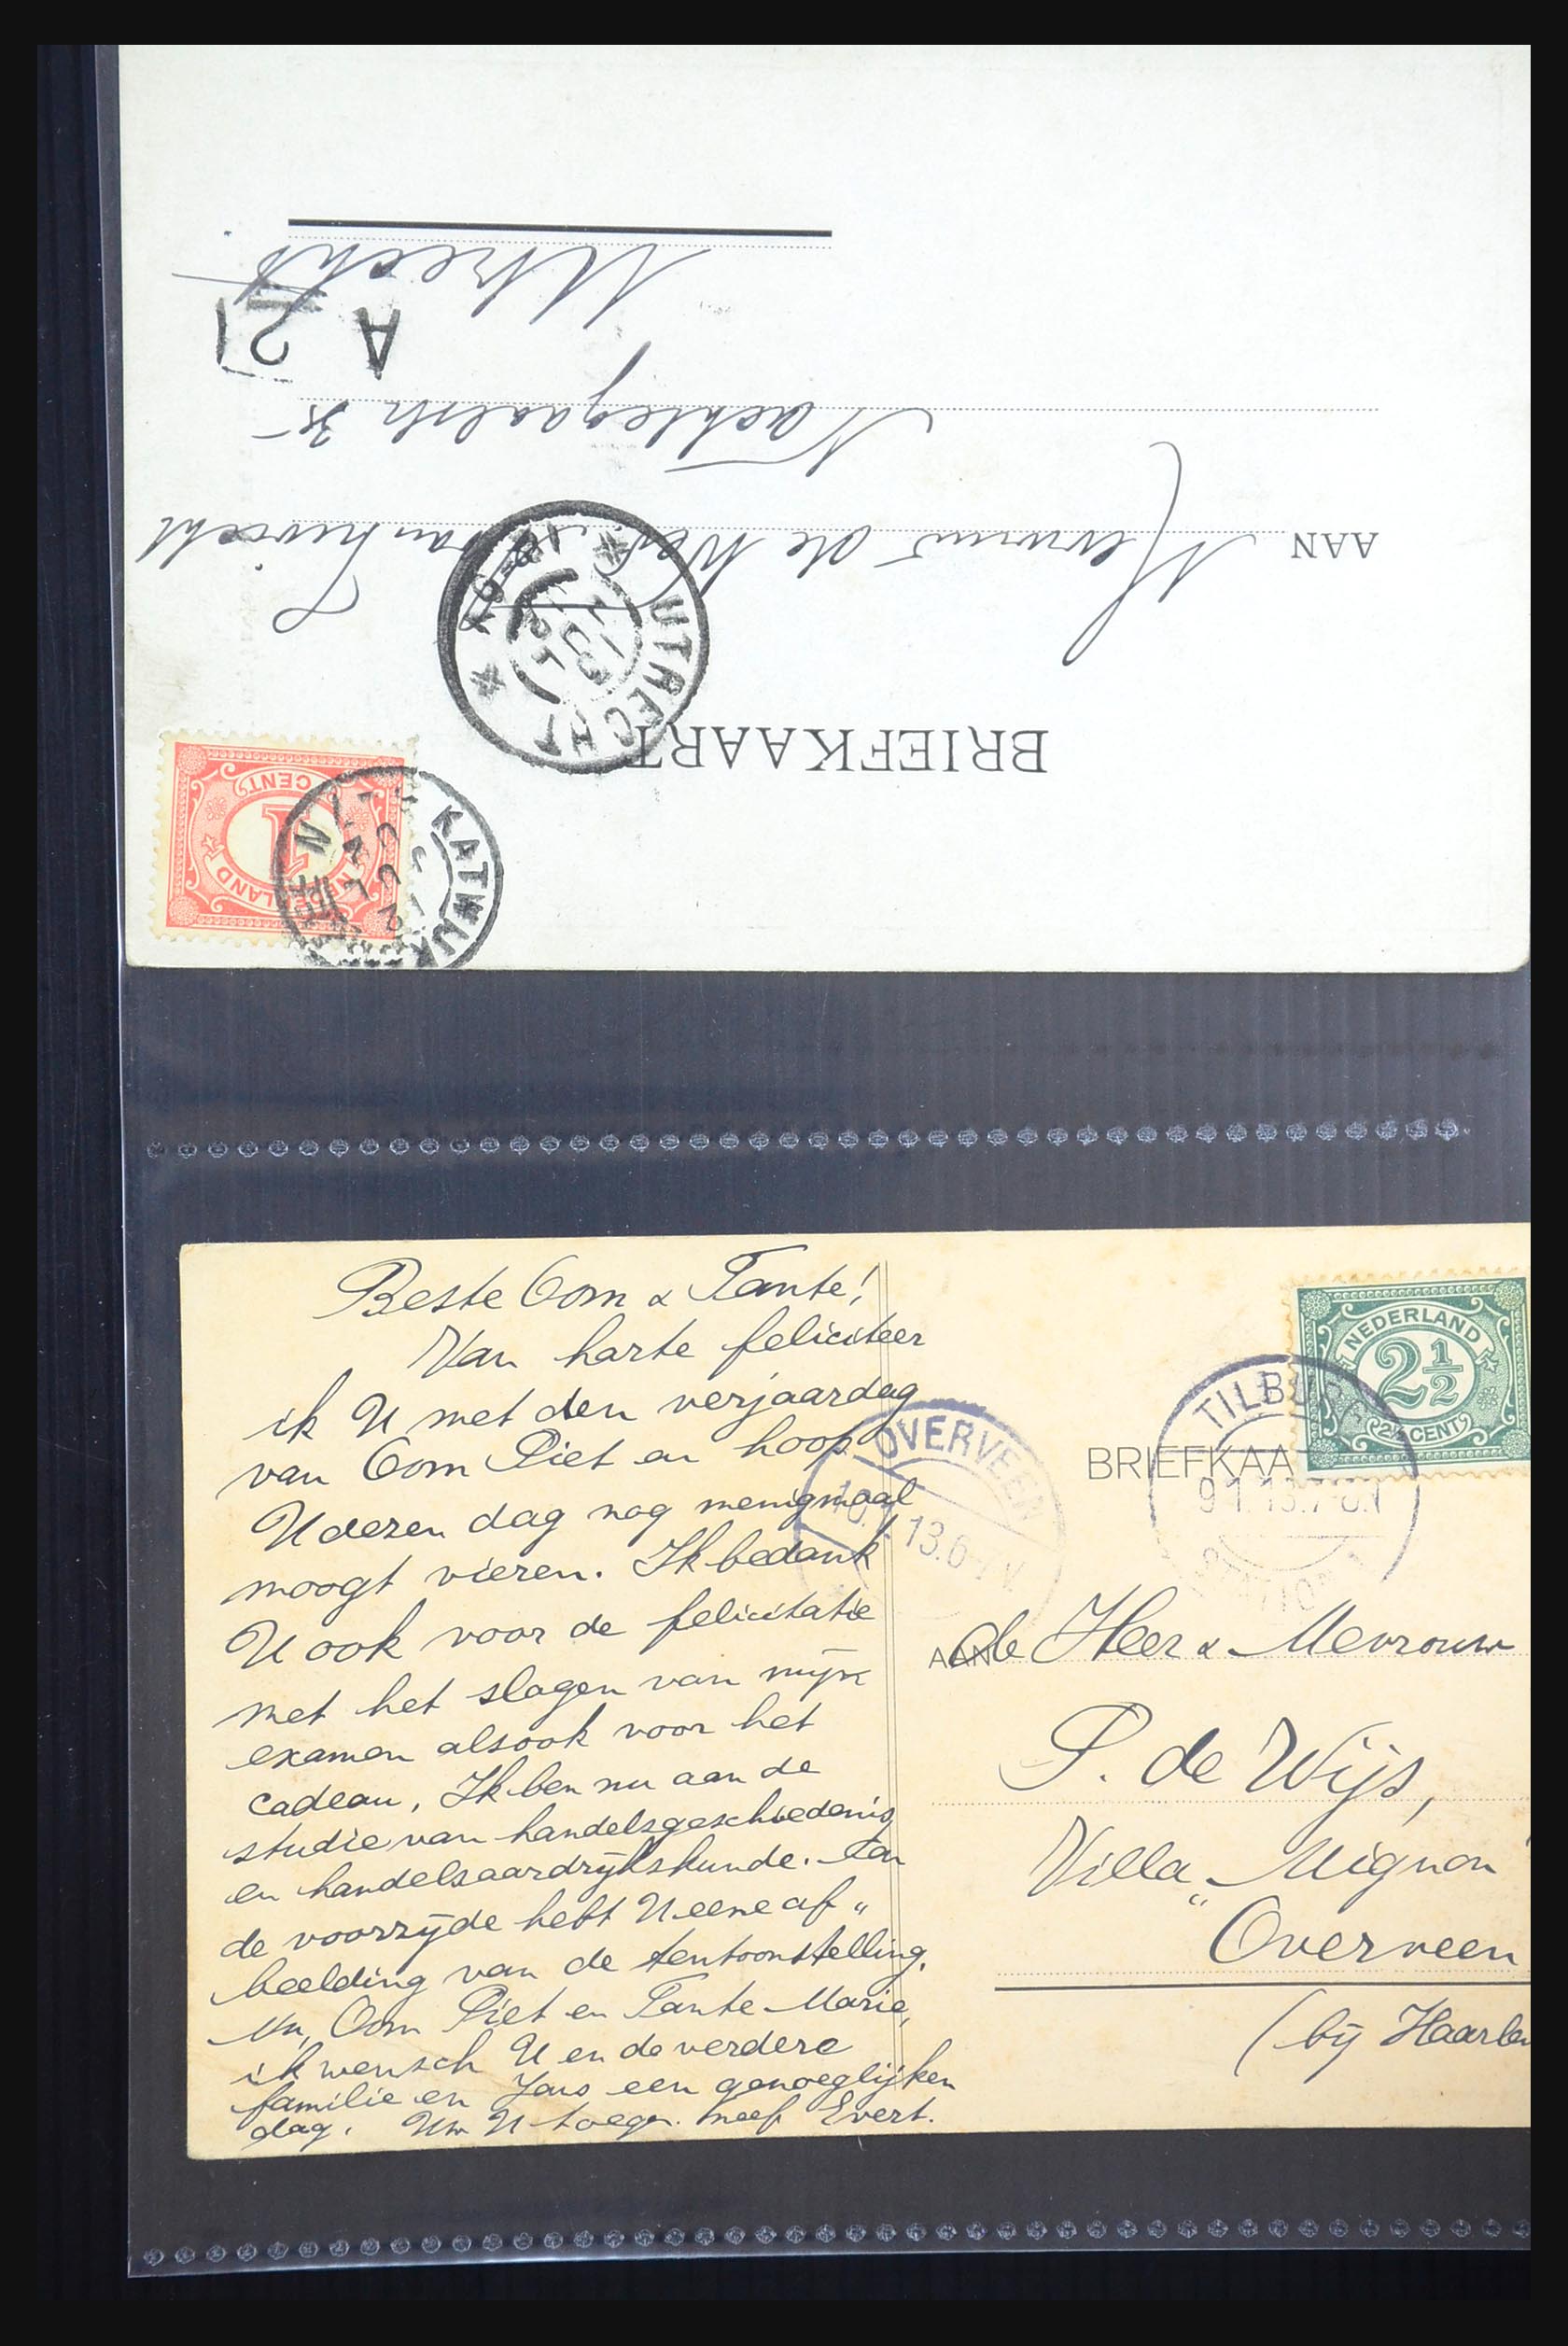 BRIEFKAART
AAN
Mevrouw de Wed.
Nachtegaalstr
Utrecht
A 21
UTRECHT
KATWIJK
1 CENT
NEDERLAND
Beste Oom & Tante!
Van harte feliciteer
ik U met den verjaardag
van Oom Piet en hoop
U dezen dag nog menigmaal
moogt vieren. Ik bedank
U ook voor de felicitatie
met het slagen van mijn
examen alsook voor het
cadeau. Ik ben nu aan de
studie van handelsgeschiedenis
en handelsaardrijkskunde. Aan
de voorzijde hebt U eene af„
beelding van de tentoonstelling.
Nu, Oom Piet en Tante Marie,
ik wensch U en de verdere
familie en Jans een genoeglijken
dag. Uw U toegen. neef Evert.
NEDERLAND
2 1/2
2½ CENT
TILBURG
9.1.13.7-8.
STATION
OVERVEEN
10.1.13.6-
BRIEFKAA
AAN
de Heer & Mevrouw
P. de Wijs,
Villa „Mignon"
Overveen
(bij Haarle